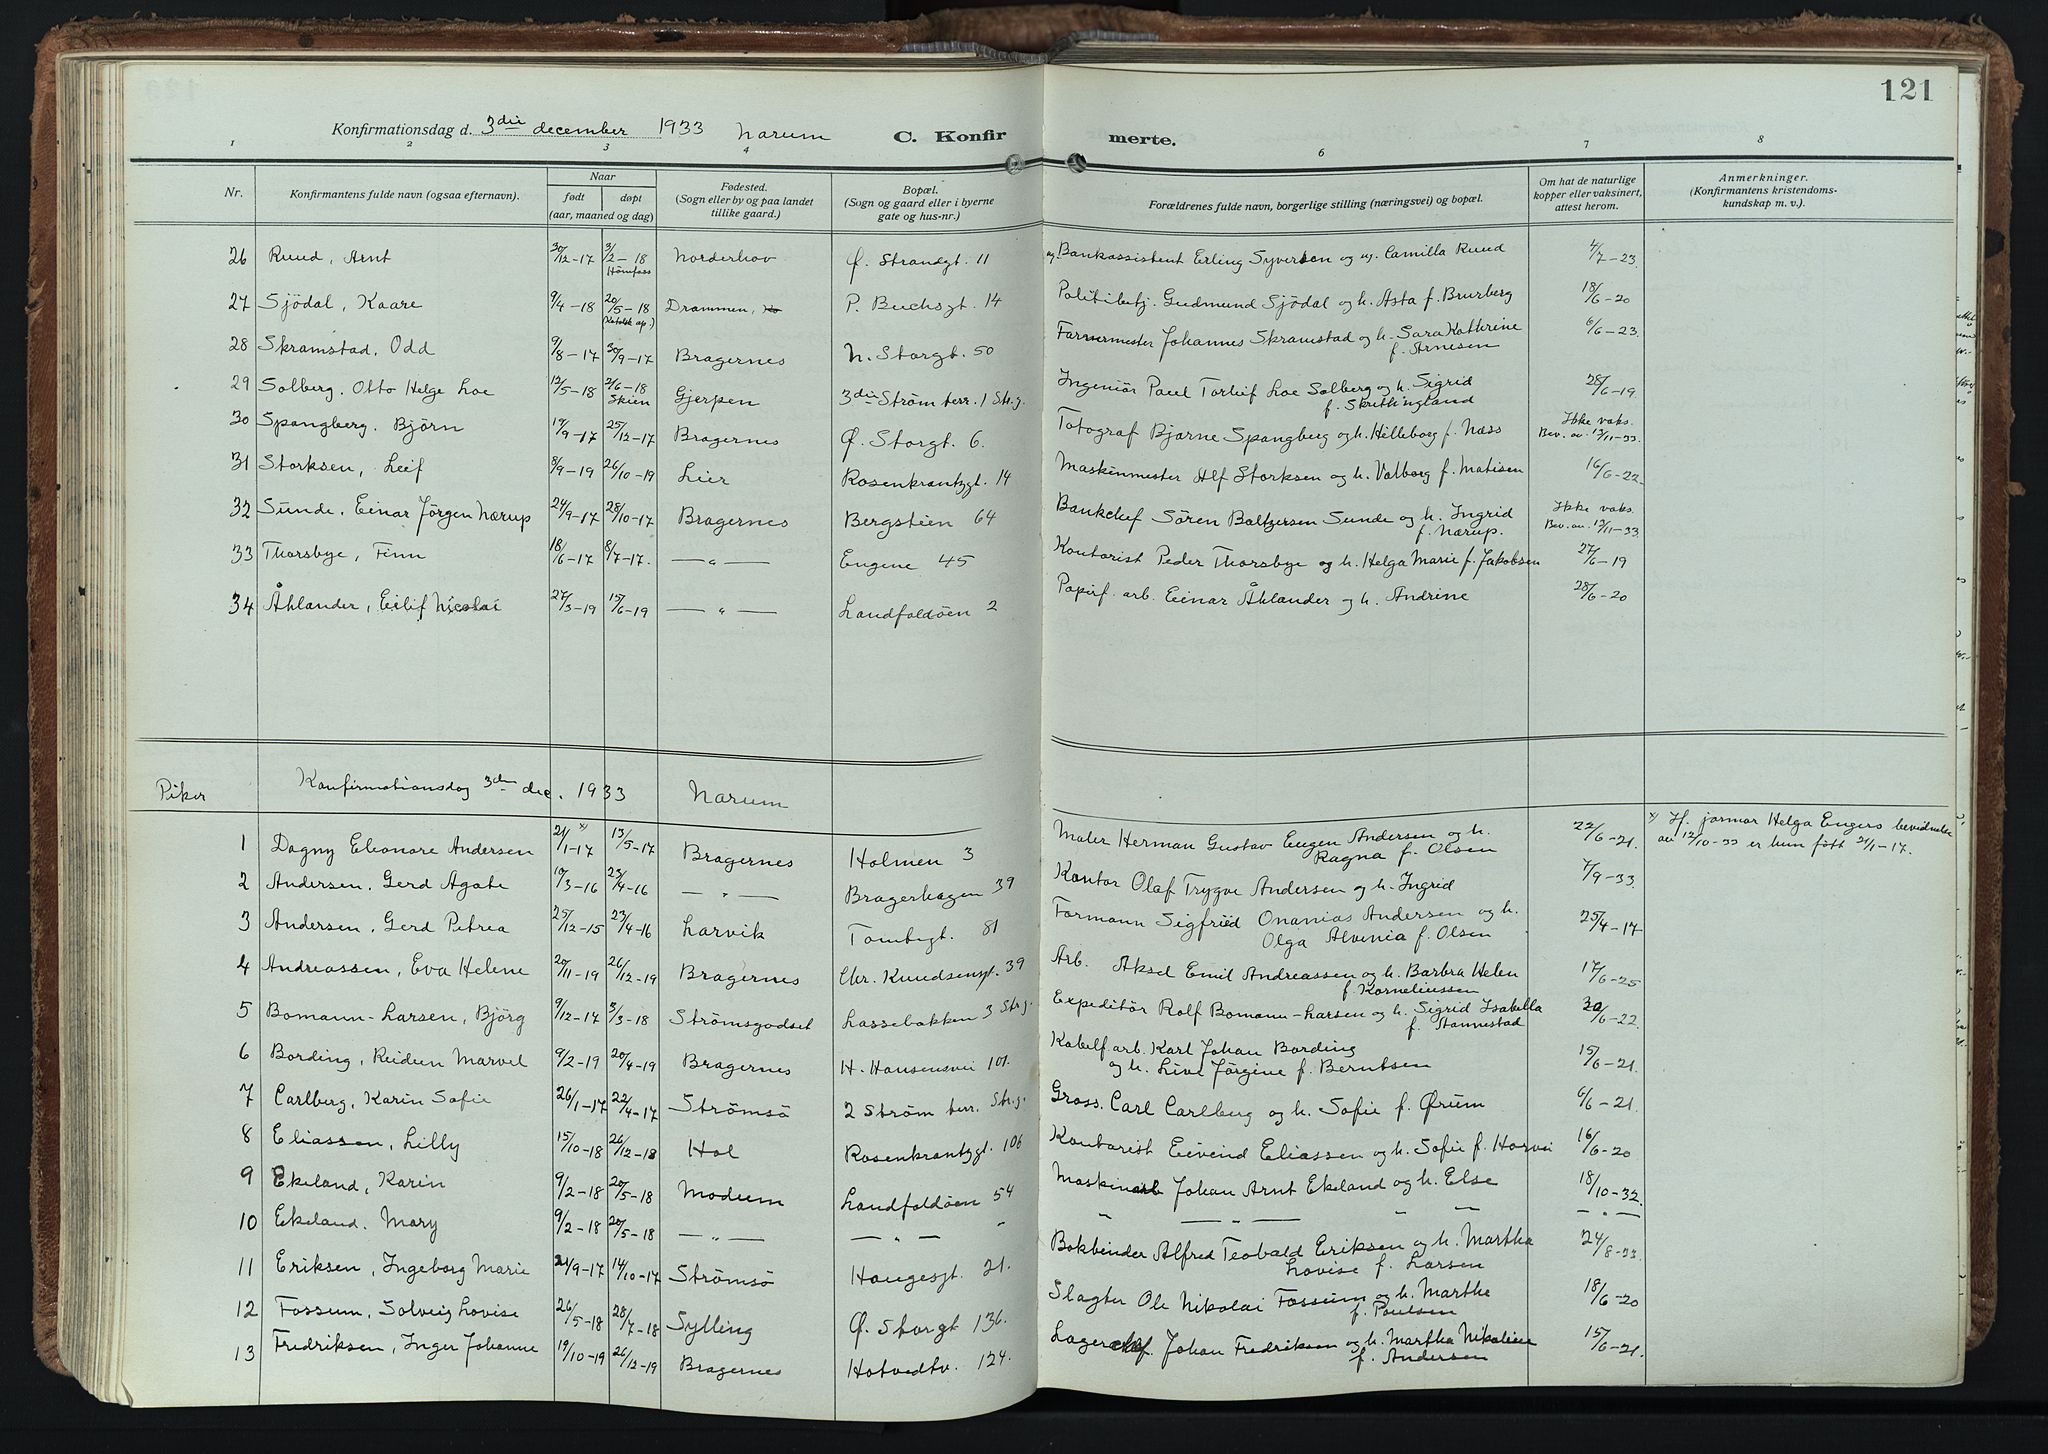 121
Konfirmationsdag d. 3die december 1933 Narum C. Konfirmerte.
1 2 3 4 6 7 8
Nr. Konfirmantens fulde navn (ogsaa efternavn). Naar født døpt (aar, maaned og dag) Fødested. (Sogn eller by og paa landet tillike gaard.) Bopæl. (Sogn og gaard eller i byerne gate og hus-nr.) Forældrenes fulde navn, borgerlige stilling (næringsvei) og bopæl. Om hat de naturlige kopper eller vaksinert, attest herom. Anmerkninger. (Konfirmantens kristendomskundskap m. v.).
26 Ruud, Arnt 30/12-17 3/2-18 Norderhov Ø. Strandgt. 11 Bankassistent Erling Syversen og ug. Camilla Ruud 4/7-23.
27 Sjödal, Kaare 9/4-18 20/5-18 (Katolsk ap.) Drammen, P. Buchsgt. 14 Politibetj. Gudmund Sjödal og h. Asta f. Brurberg 18/6-20
28 Skramstad, Odd 9/8-17 30/9-17 Bragernes N. Storgt. 50 Farvermester Johannes Skramstad og h. Sara Kathrine f. Arnesen 6/6-23.
29 Solberg, Otto Helge Loe 12/5-18 2/6-18 Skien Gjerpen 3die Strøm terr. 1 Str.g. Ingeniör Paul Torleif Loe Solberg og h. Sigrid f. Skeithingland 28/6-19.
30 Spangberg, Björn 19/9-17 25/12-17 Bragernes Ø. Storgt. 6. Fotograf Bjarne Spangberg og h. Hilleborg f. Næss Ikke vaks. Bev. av 13/11-33.
31 Storksen, Leif 8/9-19 26/10-19 Lier Rosenkrantzgt. 14 Maskinmester Alf Storksen og h. Valborg f. Matisen 16/6-22.
32 Sunde, Einar Jörgen Nærup 24/9-17 28/10-17 Bragernes Bergstien 64 Bankchef Sören Baltzersen Sunde og h. Ingrid f. Nærup. Ikke vaks. Bev. av. 13/11-33.
33 Thorsbye, Finn 18/6-17 8/7-17. — „ — Engene 45 Kontorist Peder Thorsbye og h. Helga Marie f. Jakobsen 27/6-19
34 Åhlander, Eilif Nicolai 27/3-19 15/6-19 — „ — Landfaldöen 2 Papirf. arb. Einar Åhlander og h. Andrine 28/6-20
Piker Konfirmationsdag 3die dec. 1933 Narum
1 Dagny Eleonore Andersen 21/1-17 x) 13/5-17 Bragernes Holmen 3 Maler Herman Gustav Eugen Andersen og h. Ragna f. Olsen 22/6-21. x) If. jormor Helga Engers bevidnelse av 12/10-33 er hun født 21/1-17.
2 Andersen, Gerd Agate 19/3-16 23/4-16 — „ — Bragerhagen 39 Kontor Olaf Trygve Andersen og h. Ingrid 7/9-33.
3 Andersen, Gerd Petrea 25/12-15 23/4-16 Larvik Tomtegt. 81 Formann Sigfried Onanias Andersen og h. Olga Alvinia f. Olsen 25/4-17
4 Andreassen, Eva Helene 20/11-19 26/12-19 Bragernes Chr. Knudsensgt. 39 Arb. Aksel Emil Andreassen og h. Barbra Helen f. Korneliussen 17/6-25
5 Bomann-Larsen, Björg 9/12-17 3/3-18 Strömsgodset Lassebakken 3 Str.g. Expeditör Rolf Bomann-Larsen og h. Sigrid Isabella f. Stannestad 30/6-22.
6 Bording, Reidun Marvel 9/2-19 20/4-19 Bragernes H. Hansensvei 101. Kabelf. arb. Karl Johan Bording og h. Live Jörgine f. Berntsen 15/6-21.
7 Carlberg, Karin Sofie 26/1-17 22/4-17 Strömsö 2 Strøm terr. Str.g. Gross. Carl Carlberg og h. Sofie f. Ørum 6/6-21.
8 Eliassen, Lilly 15/10-18 26/12-18 Hol Rosenkrantzgt. 106 Kontorist Eivind Eliassen og h. Sofie f. Horvei 16/6-20
9 Ekeland, Karin 9/2-18 20/5-18 Modum Landfaldöen 54 Maskinarb Johan Arnt Ekeland og h. Else 18/10-32.
10 Ekeland, Mary 9/2-18 20/5-18 — „ — — „ — „ „ — „ — „ „ — „ —
11 Eriksen, Ingeborg Marie 21/9-17 14/10-17 Strömsö Haugesgt. 21. Bokbinder Alfred Teobald Eriksen og h. Martha Lovise f. Larsen 24/8-33.
12 Fossum, Solveig Lovise 26/5-18 28/7-18 Sylling Ø. Storgt 136. Slagter Ole Nikolai Fossum og h. Marthe f. Paulsen 18/6-20
13 Fredriksen, Inger Johanne 19/10-19 26/12-19 Bragernes Hotvedtv. 124. Lagerchef. Johan Fredriksen og h. Martha Nikoline f. Andersen 15/6-21.